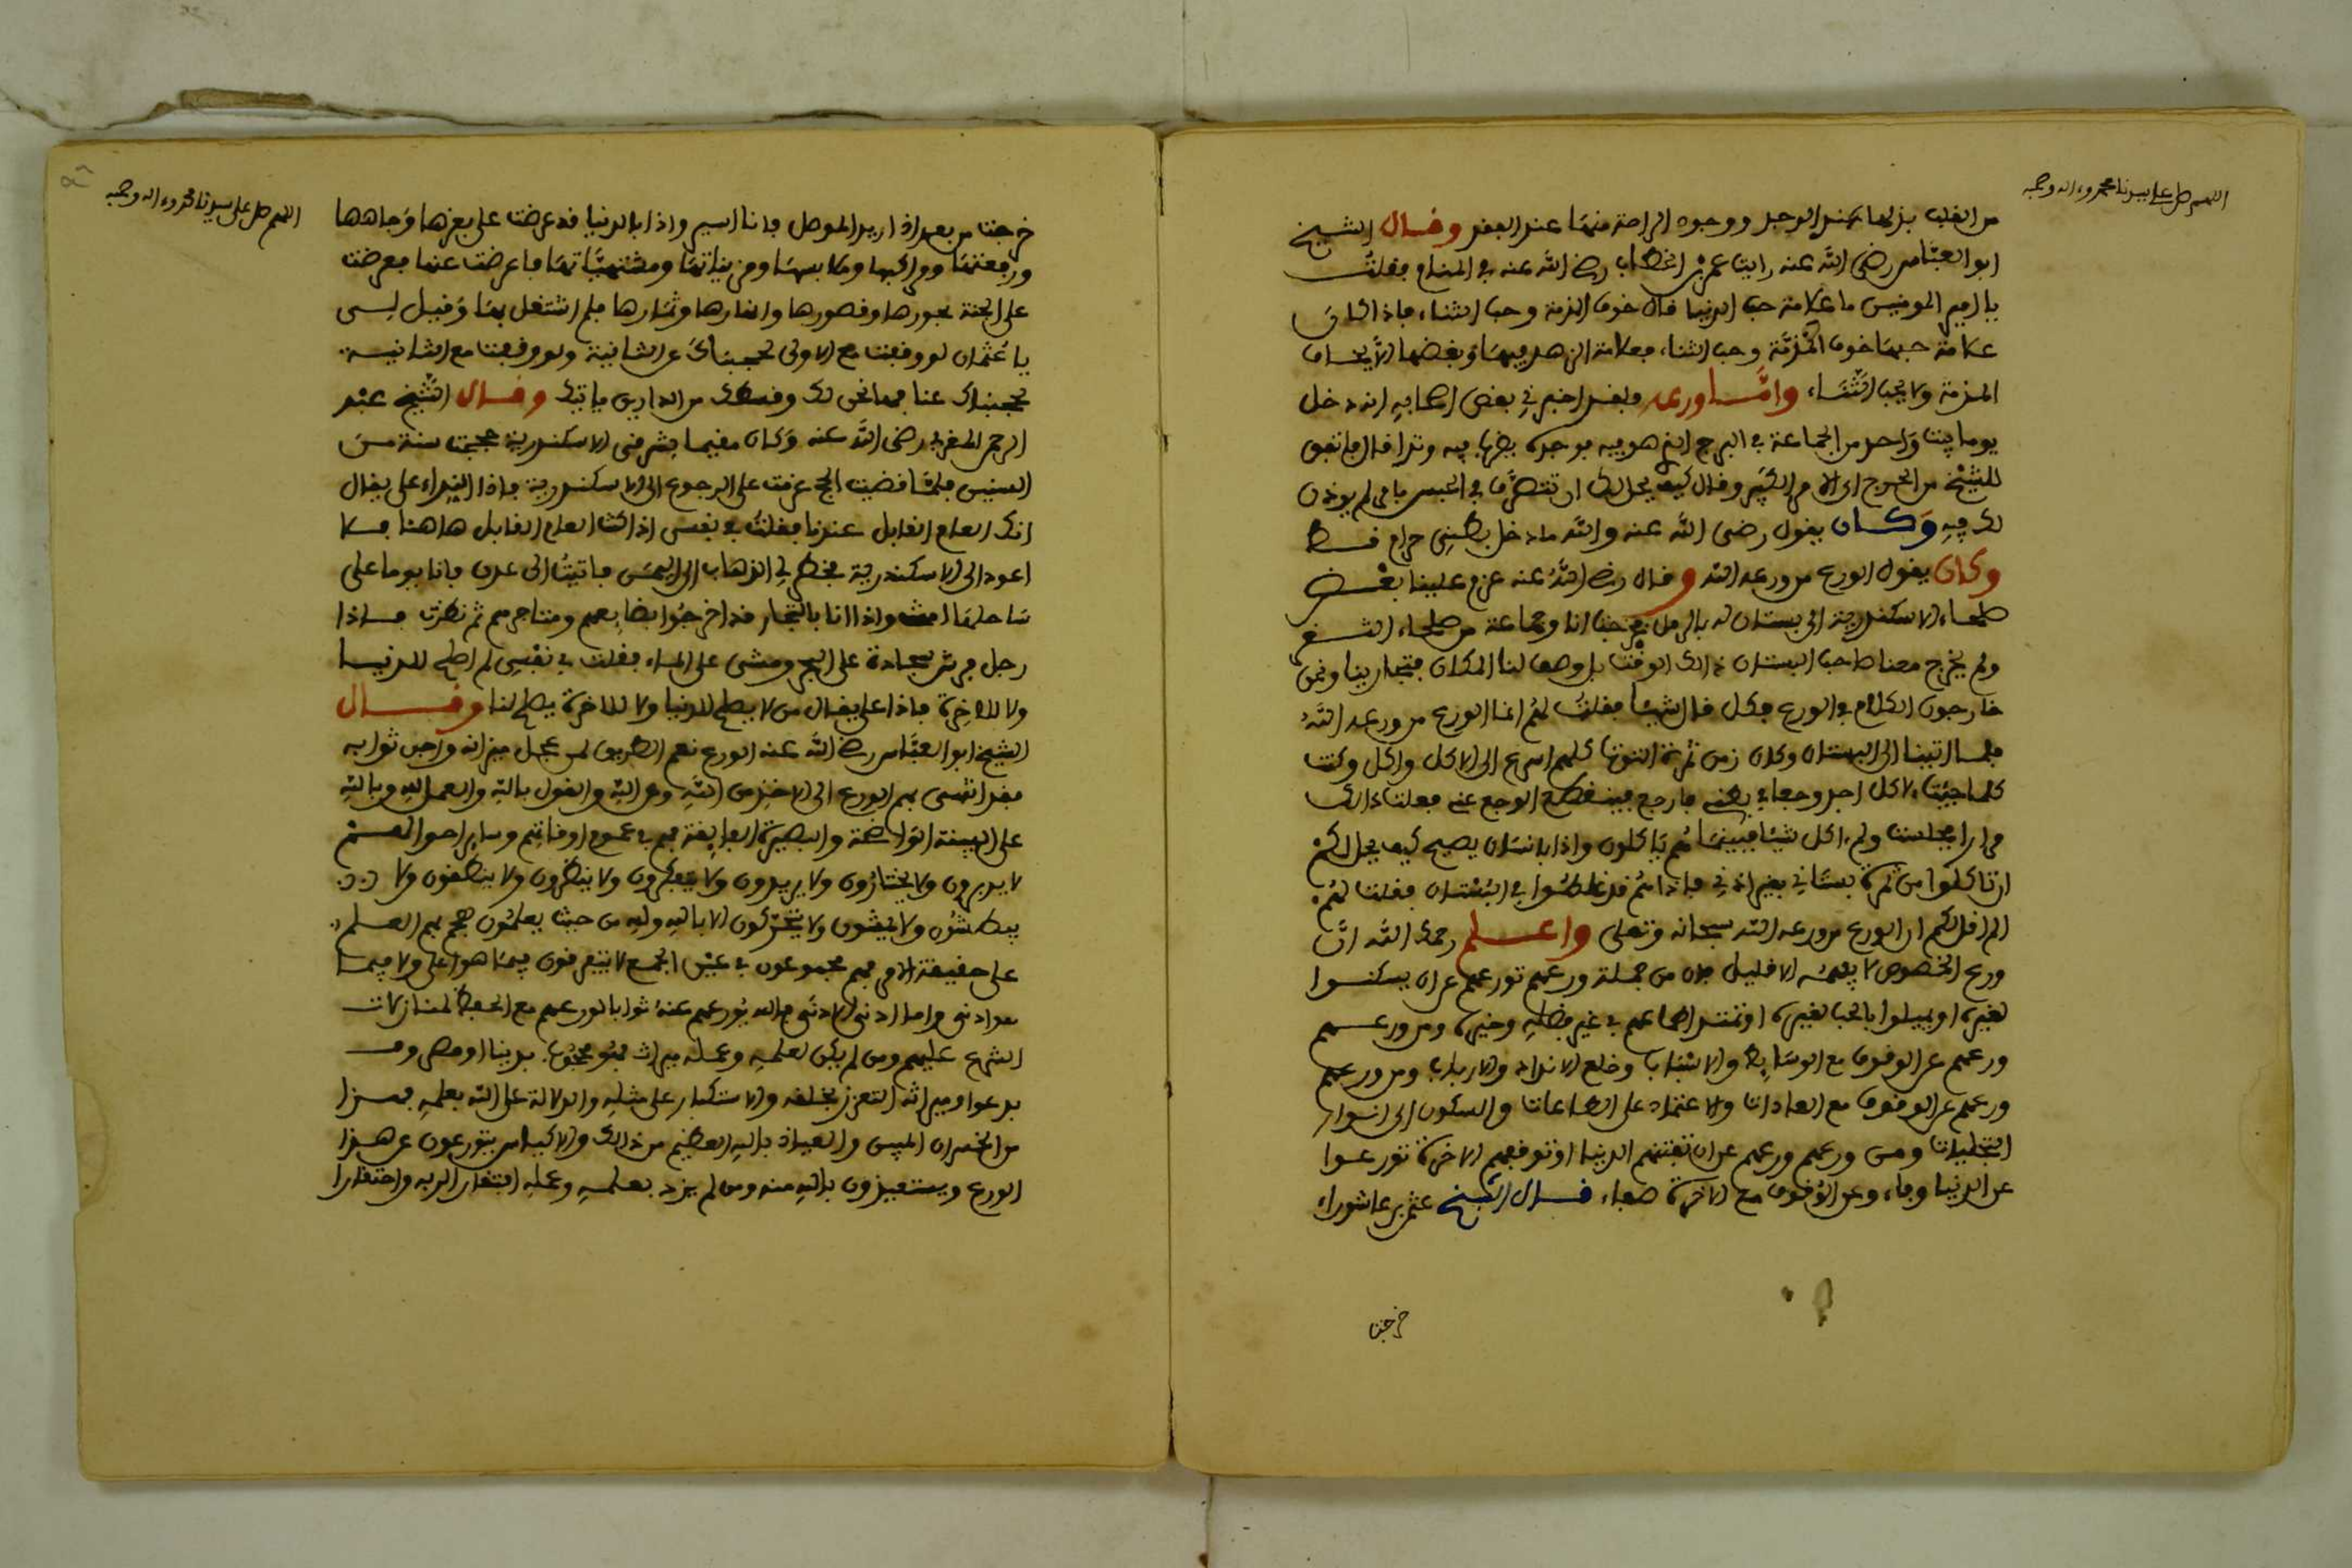 اللهم صل على سيدنا محمد وءاله وصحبه
من القلب بذلها عند الوجد ووجود الراحة منها عند الفقد وقال الشيخ
ابو العباس رضى الله عنه رايت عمر بن الخطاب رضى الله عنه في المنام فقلت
يا امير المومنين ما علامة حب الدنيا قال خوف المذمة وحب الثناء فاذا كان
علامة حبها خوف المذمة وحب الثناء فعلامة الزهد فيها وبغضها الا يخاف
المذمة ولا يحب الثناء واما ورعه فلقد اخبرني بعض اصحابه انه دخل
يوما بيت واحد من الجماعة في البرج الذي هو فيه فوجده
للشيخ من الخروج الى الامر الكبير وقال كيف يحل لك ان تتصرف في الحبس بامر لم يوذن
لك فيه وكان يقول رضى الله عنه والله ما دخل بطني حرام قط
وكان يقول الورع من ورعه الله وقال رضى الله عنه عزم علينا بعض
صلحاء الاسكندرية الى بستان له بالرمل فخرجت انا وجماعة من صلحاء الثغر
ولم يخرج معنا صاحب البستان ذالك الوقت بل وصف لنا المكان فتجارينا ونحن
خارجون الكلام في الورع فكل قال شيئا فقلت لهم انما الورع من ورعه الله
فلما اتينا الى البستان وكان زمن ثمرة التوت كلهم اسرع الى الاكل واكل وكنت
كلما جيئت لاكل اجد وجعا في بطني فارجع فينقطع الوجع عني فعلت ذالك
مرارا فجلست ولم ءاكل شيئا فبينما هم ياكلون واذا بانسان يصيح كيف يحل لكم
ان تاكلوا من ثمرة بستاني بغير اذني فاذا هم قد غلطوا في البستان فقلت لهم
الم اقل لكم ان الورع من ورعه الله سبحانه وتعلى واعلم رحمك الله ان
ورع الخصوص لا يفهمه الا قليل فان من جملة ورعهم تورعهم عن ان يسكنوا
لغيره او يميلوا بالحب لغيره او تمتد اطماعهم في غير فضله وخيره ومن ورعهم
ورعهم عن الوقوف مع الوسايط والاسباب وخلع الانداد والارباب ومن ورعهم
ورعهم عن الوقوف مع العادات والاعتماد على الطاعات والسكون الى انوار
التجليات ومن ورعهم ورعهم عن ان تفتنهم الدنيا او توقفهم الاخرة تورعوا
عن الدنيا وفاء وعن الوقوف مع الاخرة صفاء قال الشيخ عثمن بن عاشوراء
خرجت
اللهم صل على سيدنا محمد وءاله وصحبه
خرجت من بغداد اريد الموصل فانا اسير واذا بالدنيا قد عرضت على بعزها وجاهها
ورفعتها ومراكبها وملابسها ومزيناتها ومشتهياتها فاعرضت عنها فعرضت
على الجنة بحورها وقصورها وانهارها وثمارها فلم اشتغل بها وقيل لي
يا عثمان لو وقفت مع الاولى لحجبناك عن الثانية ولو وقفت مع الثانية
لحجبناك عنا فها نحن لك وقسطك من الدارين ياتيك وقال الشيخ عبد
الرحمن المغربي رضى الله عنه وكان مقيما بشرقي الاسكندرية حججت سنة من
السنين فلما قضيت الحج عزمت على الرجوع الى الاسكندرية فاذا النداء على يقال
انك العام القابل عندنا فقلت في نفسي اذا كنت العام القابل هاهنا فلا
اعود الى الاسكندرية فخطر لي الذهاب الى اليمن فاتيت الى عدن فانا يوما على
ساحلها امش واذا انا بالتجار قد اخرجوا بضايعهم ومتاجرهم ثم نظرت فاذا
رجل فرش سجادة على البحر ومشى على الماء فقلت في نفسي لم اصلح للدنيا
ولا للاخرة فاذا على يقال من لا يصلح للدنيا ولا للاخرة يصلح لنا وقال
الشيخ ابو العباس رضى الله عنه الورع نعم الطريق لمن عجل ميراثه واجل ثوابه
فقد انتهى بهم الورع الى الاخذ من الله وعن الله والقول بالله والعمل لله وبالله
على البينة الواضحة والبصيرة الفايقة فهم في عموم اوقاتهم وساير احوالهم
لا يدبرون ولا يختارون ولا يريدون ولا يتفكرون ولا ينظرون ولا ينطقون ولا
يبطشون ولا يمشون ولا يتحركون الا بالله ولله من حيث يعلمون هجم بهم العلم
على حقيقة الامر فهم مجموعون في عين الجمع لا يتفرقون فيما هو اعلى ولا فيما
هو ادنى واما ادنى الادنى فالله يورعهم عنه ثوابا لورعهم مع الحفظ لمنازلات
الشرع عليهم ومن لم يكن لعلمه وعمله ميراث فهو محجوب بدنيا او مصروف
بدعوا وميراثه التعزز لخلقه والاستكبار على مثله والدلالة على الله بعلمه فهذا
من الخسران المبين والعياذ بالله العظيم من ذالك والاكياس يتورعون عن هذا
الورع ويستعيذون بالله منه ومن لم يزدد بعلمه وعمله افتقارا لربه واحتقارا